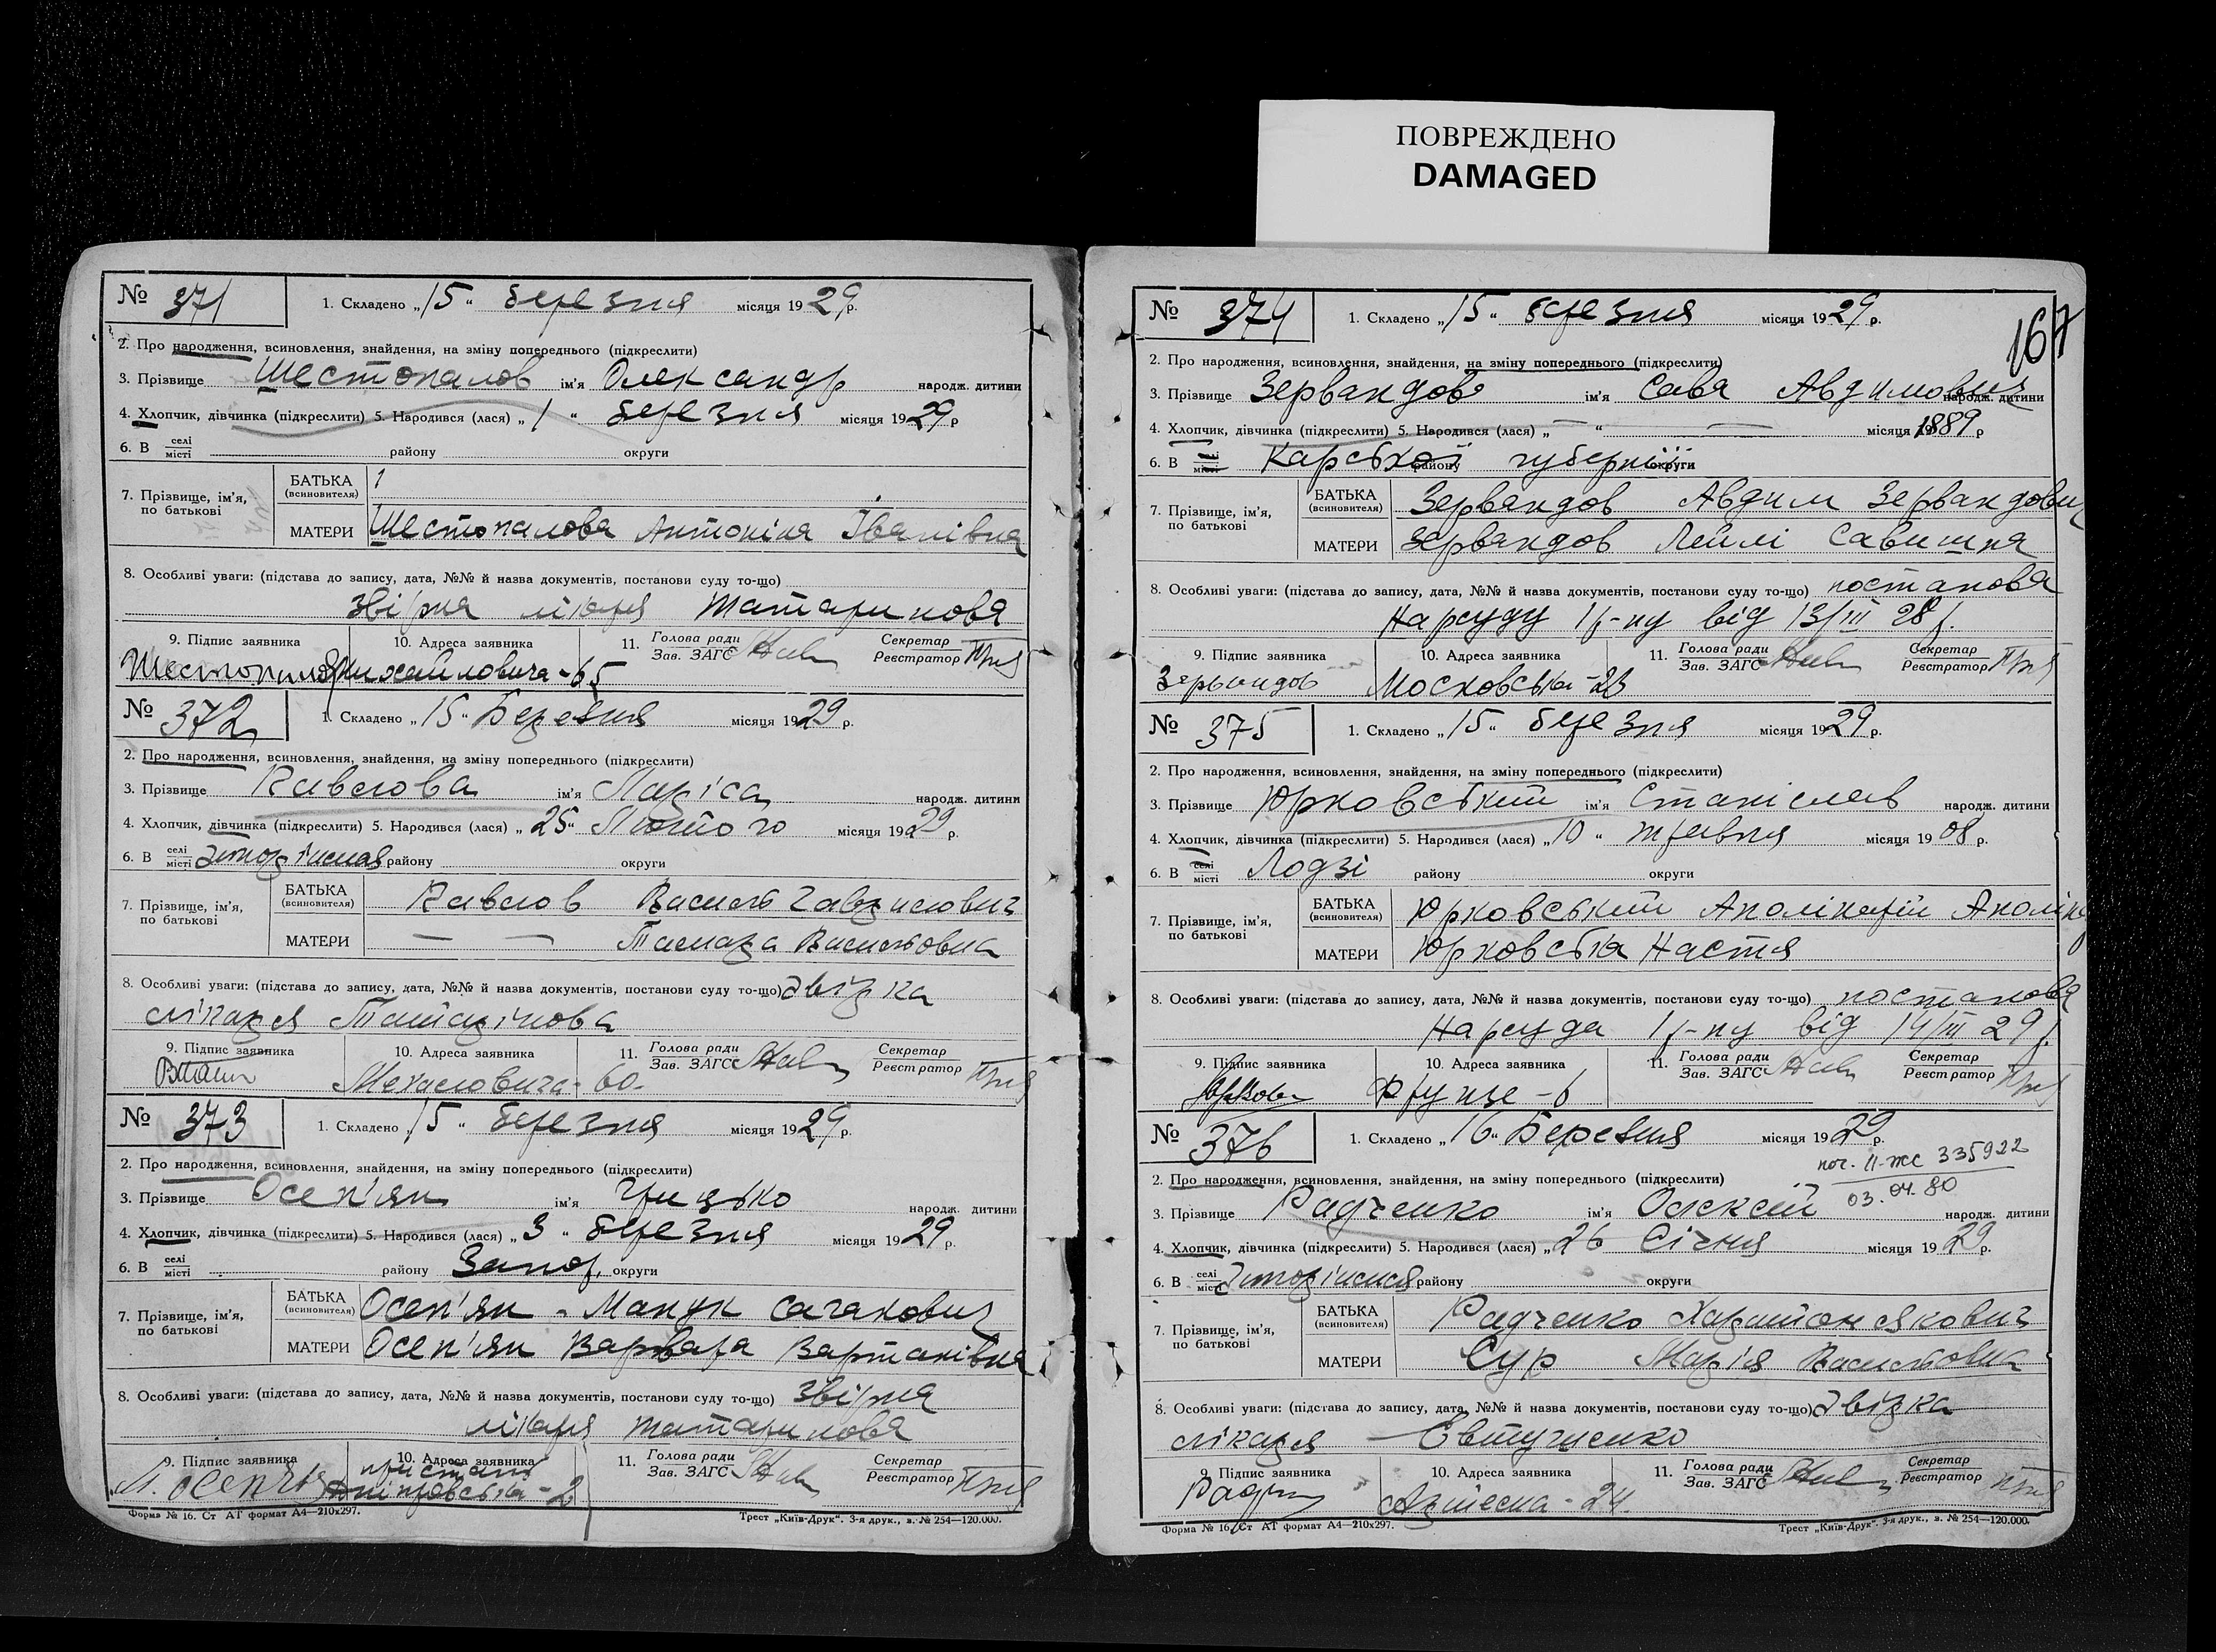 ПОВРЕЖДЕНО
DAMAGED
№ 371
1. Складено „15“ березня місяця 1929 р.
2. Про народження, всиновлення, знайдення, на зміну попереднього (підкреслити)
3. Прізвище Шестопалов ім'я Олександр народж. дитини
4. Хлопчик, дівчинка (підкреслити) 5. Народився (лася) „1“ березня місяця 1929 р
6. В селі місті району округи
7. Прізвище, ім'я, по батькові
БАТЬКА (всиновителя)
МАТЕРИ Шестопалова Антоніна Іванівна
8. Особливі уваги: (підстава до запису, дата, №№ й назва документів, постанови суду то-що)
звірка лікаря Татаринова
9. Підпис заявника 10. Адреса заявника 11. Голова ради Зав. ЗАГС Секретар Реєстратор
№ 372
1. Складено „15“ Березня місяця 1929 р.
2. Про народження, всиновлення, знайдення, на зміну попереднього (підкреслити)
3. Прізвище ім'я Лариса народж. дитини
4. Хлопчик, дівчинка (підкреслити) 5. Народився (лася) „25“ Лютого місяця 1929 р.
6. В селі місті району округи
7. Прізвище, ім'я, по батькові
БАТЬКА (всиновителя) Василь Гаврилович
МАТЕРИ — — Тамара Васильовна
8. Особливі уваги: (підстава до запису, дата, №№ й назва документів, постанови суду то-що) Звірка
лікаря Татарінова
9. Підпис заявника 10. Адреса заявника 11. Голова ради Зав. ЗАГС Секретар Реєстратор
60.
№ 373
1. Складено „15“ березня місяця 1929 р.
2. Про народження, всиновлення, знайдення, на зміну попереднього (підкреслити)
3. Прізвище Осеп'ян ім'я Грицько народж. дитини
4. Хлопчик, дівчинка (підкреслити) 5. Народився (лася) „3“ березня місяця 1929 р.
6. В селі місті району Запор. округи
7. Прізвище, ім'я, по батькові
БАТЬКА (всиновителя) Осеп'ян - Манук Сагакович
МАТЕРИ Осеп'ян Варвара Вартанівна
8. Особливі уваги: (підстава до запису, дата, №№ й назва документів, постанови суду то-що) звірка
лікаря Татаринова
9. Підпис заявника 10. Адреса заявника 11. Голова ради Зав. ЗАГС Секретар Реєстратор
пристань
Дніпровська - 2
Форма № 16. Ст АТ формат А4—210х297. Трест „Київ-Друк“. 3-я друк., з. № 254—120.000.
167
№ 374
1. Складено „15“ березня місяця 1929 р.
2. Про народження, всиновлення, знайдення, на зміну попереднього (підкреслити)
3. Прізвище Зервандов ім'я Сава Авдимович народж. дитини
4. Хлопчик, дівчинка (підкреслити) 5. Народився (лася) „—“ — місяця 1889 р
6. В селі місті Карської району губернії округи
7. Прізвище, ім'я, по батькові
БАТЬКА (всиновителя) Зервандов Авдим Зервандович
МАТЕРИ Зервандов Лейлі Савишня
8. Особливі уваги: (підстава до запису, дата, №№ й назва документів, постанови суду то-що) постанова
Нарсуду 1 р-ну від 13/III 28 р.
9. Підпис заявника 10. Адреса заявника 11. Голова ради Зав. ЗАГС Секретар Реєстратор
Зервандов Московська - 23
№ 375
1. Складено „15“ березня місяця 1929 р.
2. Про народження, всиновлення, знайдення, на зміну попереднього (підкреслити)
3. Прізвище Юрковський ім'я Станіслав народж. дитини
4. Хлопчик, дівчинка (підкреслити) 5. Народився (лася) „10“ травня місяця 1908 р.
6. В селі місті Лодзі району округи
7. Прізвище, ім'я, по батькові
БАТЬКА (всиновителя) Юрковський Аполінарій
МАТЕРИ Юрковська Настя
8. Особливі уваги: (підстава до запису, дата, №№ й назва документів, постанови суду то-що) постанова
Нарсуда 1 р-ну від 14/III 29 р.
9. Підпис заявника 10. Адреса заявника 11. Голова ради Зав. ЗАГС Секретар Реєстратор
Фрунзе - 6
№ 376
1. Складено „16“ Березня місяця 1929 р.
пов. II-ЖС 335922
03.04.80
2. Про народження, всиновлення, знайдення, на зміну попереднього (підкреслити)
3. Прізвище Радченко ім'я Олексій народж. дитини
4. Хлопчик, дівчинка (підкреслити) 5. Народився (лася) „26 Січня місяця 1929 р.
6. В селі місті району округи
7. Прізвище, ім'я, по батькові
БАТЬКА (всиновителя) Радченко Харитон Якович
МАТЕРИ Сур Марія Васильовна
8. Особливі уваги: (підстава до запису, дата, №№ й назва документів, постанови суду то-що) Звірка
лікаря Євтушенко
9. Підпис заявника 10. Адреса заявника 11. Голова ради Зав. ЗАГС Секретар Реєстратор
Артема - 24
Форма № 16. Ст АТ формат А4—210х297. Трест „Київ-Друк“. 3-я друк., з. № 254—120.000.